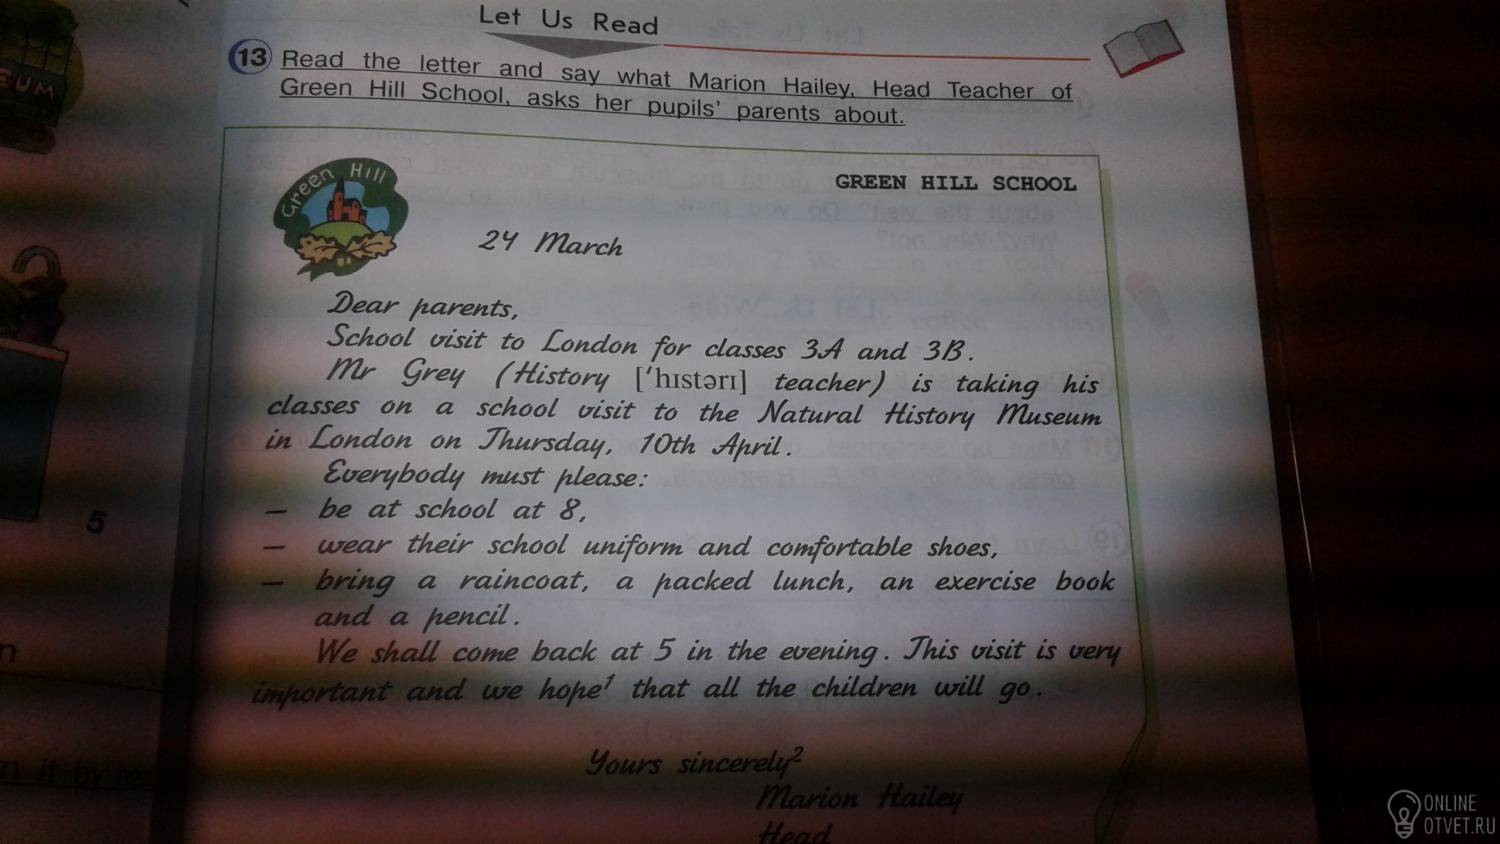 Let Us Read
13 Read the letter and say what Marion Hailey, Head Teacher of
Green Hill School, asks her pupils' parents about.
Green Hill
GREEN HILL SCHOOL
24 March
Dear parents,
School visit to London for classes 3A and 3B.
Mr Grey (History ['hɪstərɪ] teacher) is taking his
classes on a school visit to the Natural History Museum
in London on Thursday, 10th April.
Everybody must please:
– be at school at 8,
– wear their school uniform and comfortable shoes,
– bring a raincoat, a packed lunch, an exercise book
and a pencil.
We shall come back at 5 in the evening. This visit is very
important and we hope¹ that all the children will go.
Yours sincerely²
Marion Hailey
Head
EUM
5
n it by
ONLINE
OTVET.RU